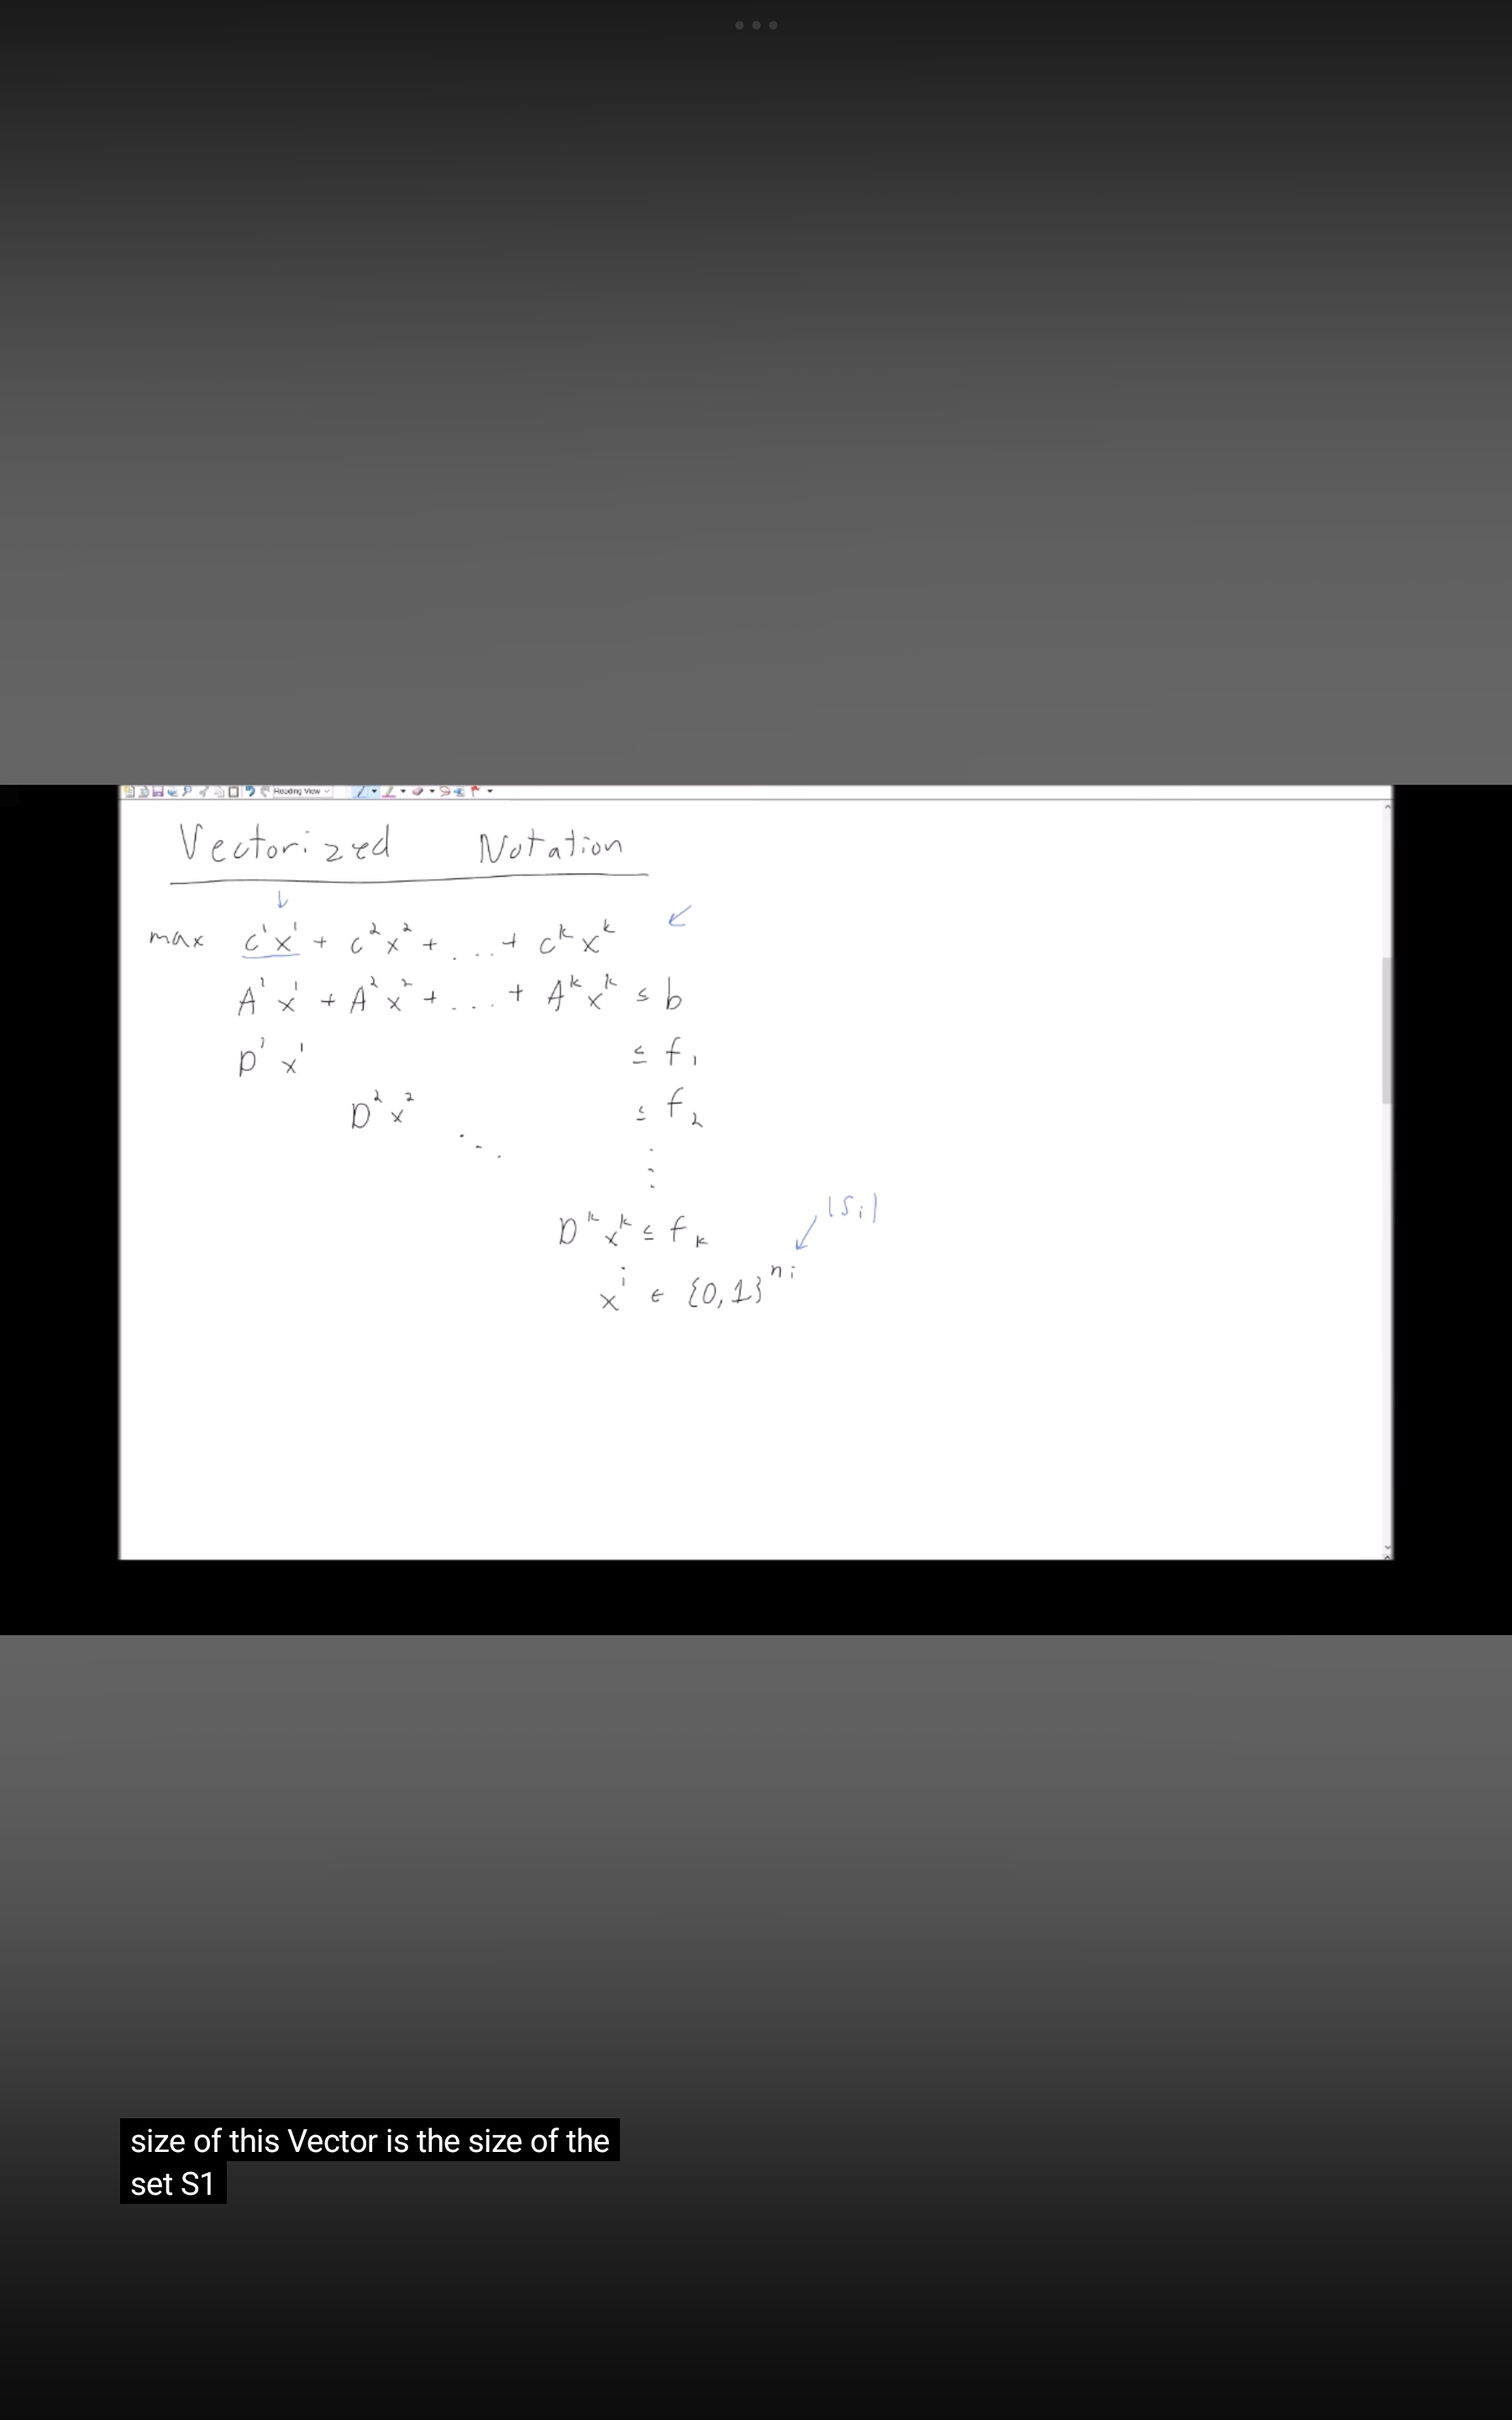 Reading View
Vectorized Notation
max c¹x¹ + c²x² + ... + cᵏxᵏ
A¹x¹ + A²x² + ... + Aᵏxᵏ ≤ b
D¹x¹ ≤ f₁
D²x² ≤ f₂
⋱ ⋮
|Sᵢ|
Dᵏxᵏ ≤ fₖ
xⁱ ∈ {0,1}ⁿⁱ
size of this Vector is the size of the
set S1